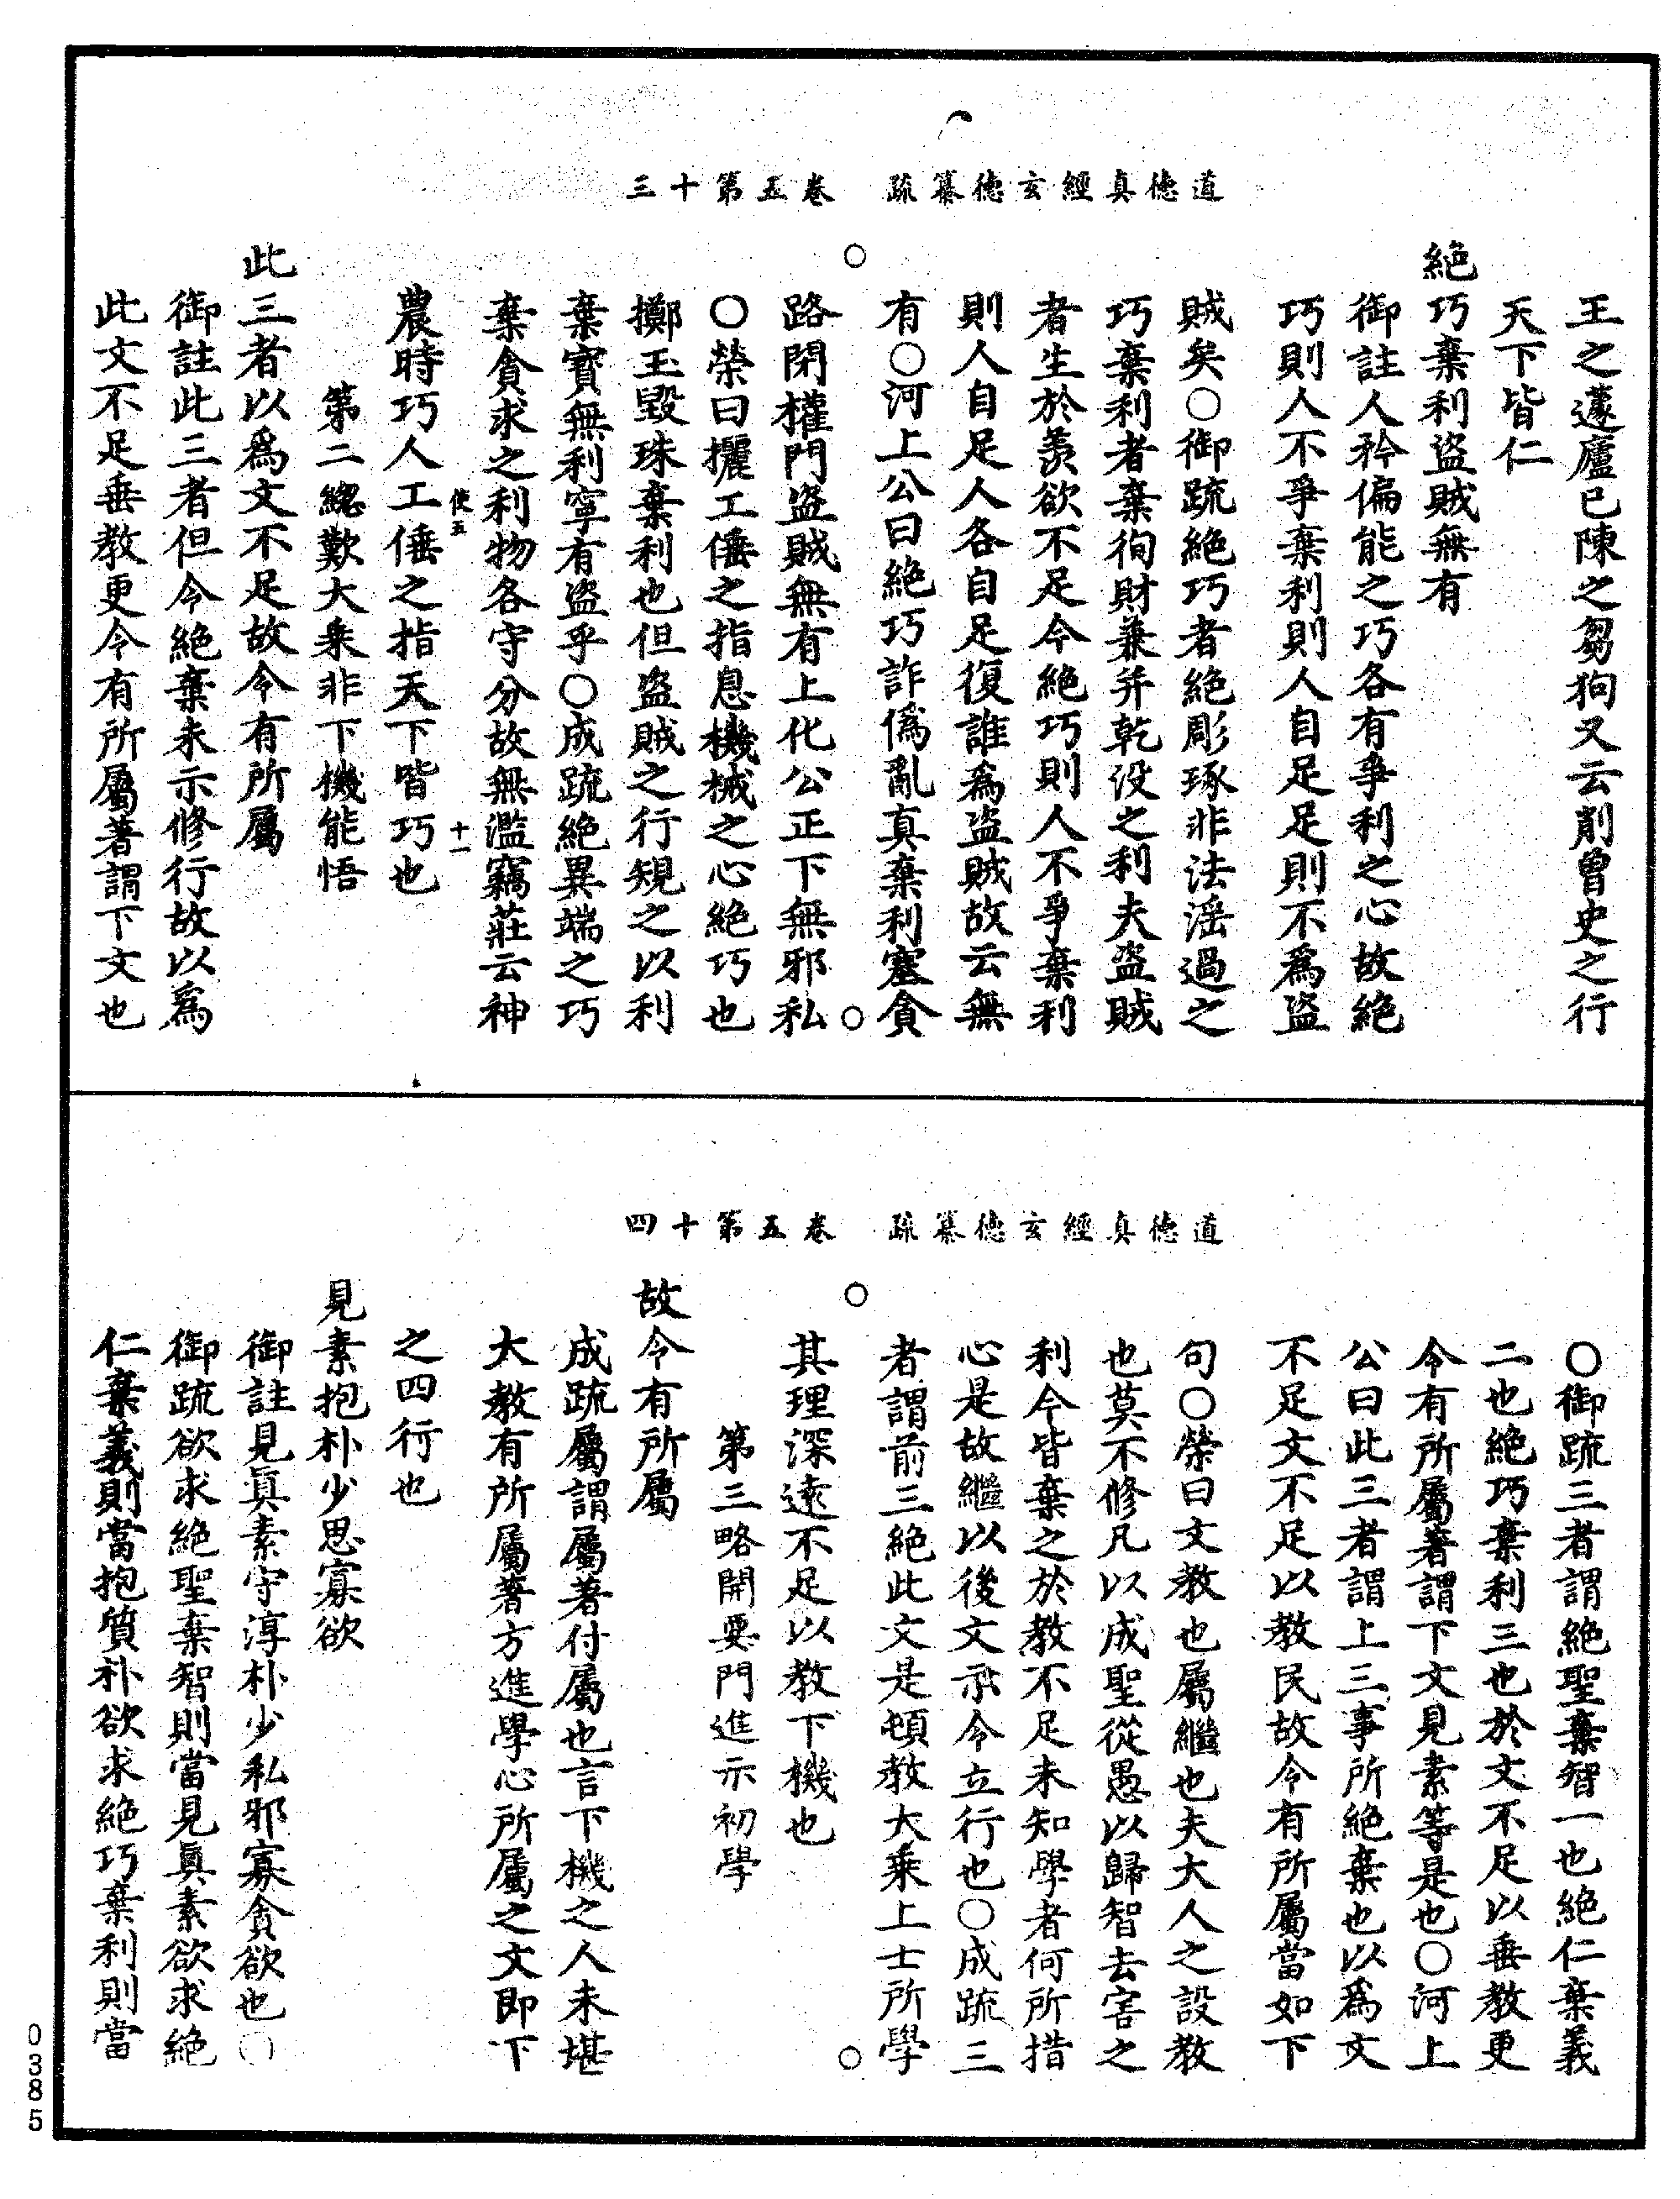 道德真經玄德纂疏　卷五第十三
王之蘧廬已陳之芻狗又云削曾史之行
天下皆仁
絕巧棄利盜賊無有
御註人矜偏能之巧各有爭利之心故絕
巧則人不爭棄利則人自足足則不為盜
賊矣○御疏絕巧者絕彫琢非法滛過之
巧棄利者棄徇財兼并乾没之利夫盜賊
者生於羨欲不足今絕巧則人不爭棄利
則人自足人各自足復誰為盜賊故云無
有○河上公曰絕巧詐偽亂真棄利塞貪
路閉權門盜賊無有上化公正下無邪私
○榮曰攦工倕之指息機械之心絕巧也
擲玉毀珠棄利也但盜賊之行規之以利
棄寳無利寧有盜乎○成疏絕異端之巧
棄貪求之利物各守分故無濫竊莊云神
使五　十一
農時巧人工倕之指天下皆巧也
第二緫歎大乗非下機能悟
此三者以為文不足故令有所屬
御註此三者但令絕棄未示修行故以為
此文不足垂教更令有所屬著謂下文也
道德真經玄德纂疏　卷五第十四
○御疏三者謂絕聖棄智一也絕仁棄義
二也絕巧棄利三也於文不足以垂教更
令有所屬著謂下文見素等是也○河上
公曰此三者謂上三事所絕棄也以為文
不足文不足以教民故令有所屬當如下
句○榮曰文教也屬繼也夫大人之設教
也莫不修凡以成聖從愚以歸智去害之
利今皆棄之於教不足未知學者何所措
心是故繼以後文示令立行也○成疏三
者謂前三絕此文是頓教大乗上士所學
其理深遠不足以教下機也
第三略開要門進示初學
故令有所屬
成疏屬謂屬著付屬也言下機之人未堪
大教有所屬著方進學心所屬之文即下
之四行也
見素抱朴少思寡欲
御註見真素守淳朴少私邪寡貪欲也○
御疏欲求絕聖棄智則當見真素欲求絕
仁棄義則當抱質朴欲求絕巧棄利則當
0385